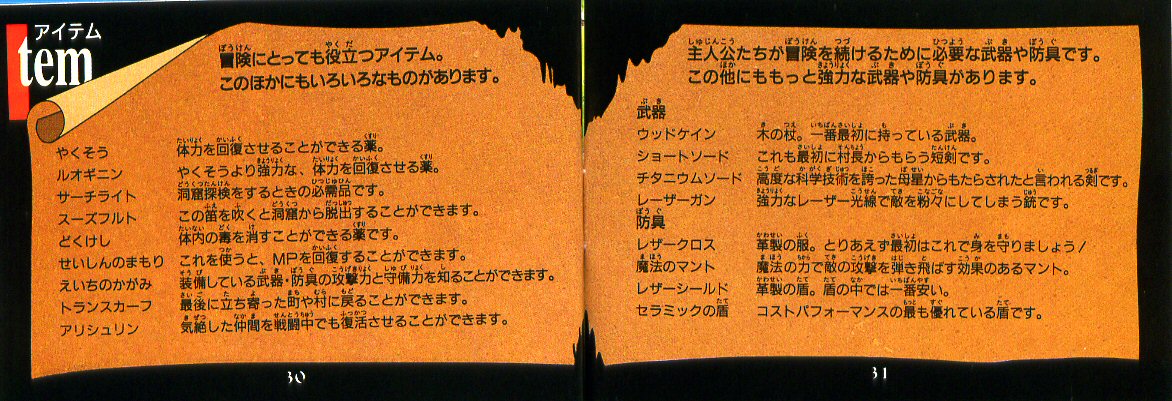 アイテム
tem
冒険にとっても役立つアイテム。
このほかにもいろいろなものがあります。
やくそう 体力を回復させることができる薬。
ルオギニン やくそうより強力な、体力を回復させる薬。
サーチライト 洞窟探検をするときの必需品です。
スーズフルト この笛を吹くと洞窟から脱出することができます。
どくけし 体内の毒を消すことができる薬です。
せいしんのまもり これを使うと、MPを回復することができます。
えいちのかがみ 装備している武器・防具の攻撃力と守備力を知ることができます。
トランスカーフ 最後に立ち寄った町や村に戻ることができます。
アリシュリン 気絶した仲間を戦闘中でも復活させることができます。
30
主人公たちが冒険を続けるために必要な武器や防具です。
この他にももっと強力な武器や防具があります。
武器
ウッドケイン 木の杖。一番最初に持っている武器。
ショートソード これも最初に村長からもらう短剣です。
チタニウムソード 高度な科学技術を誇った母星からもたらされたと言われる剣です。
レーザーガン 強力なレーザー光線で敵を粉々にしてしまう銃です。
防具
レザークロス 革製の服。とりあえず最初はこれで身を守りましょう!
魔法のマント 魔法の力で敵の攻撃を弾き飛ばす効果のあるマント。
レザーシールド 革製の盾。盾の中では一番安い。
セラミックの盾 コストパフォーマンスの最も優れている盾です。
31